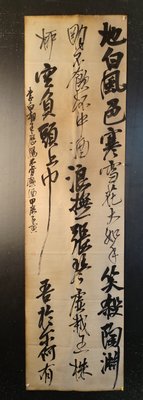 地白風色寒雪花大如手笑殺陶淵
明不飲杯中酒浪撫一張琴虛栽五株
柳空負頭上巾吾於爾何有
李白嘲王歷陽不肯飲酒